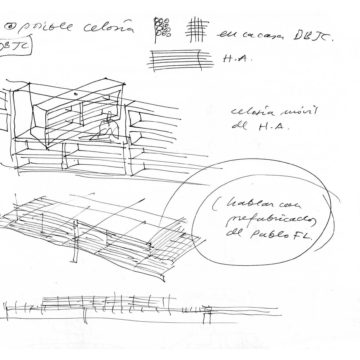 @ posible celosía
en la casa DBJC.
DBJC
H.A.
celosía móvil
de H.A.
(hablar con
prefabricados
de Pablo FL